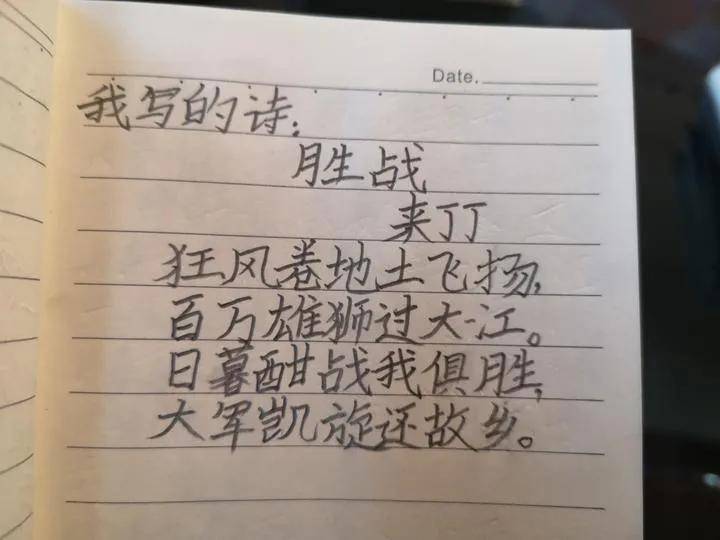 Date.
我写的诗:
胜战
来丁丁
狂风卷地土飞扬,
百万雄狮过大江。
日暮酣战我俱胜,
大军凯旋还故乡。